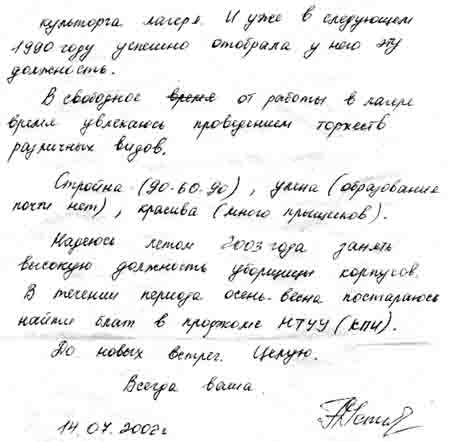 культорга лагеря. И уже в следующем
1990 году успешно отобрала у него эту
должность.
В свободное время от работы в лагере
время увлекаюсь проведением торжеств
различных видов.
Стройна (90-60-90), умна (образование
почти нет), красива (много прыщиков).
Надеюсь летом 2003 года занять
высокую должность уборщицы корпусов.
В течении периода осень-весна постараюсь
найти блат в профкоме НТУУ (КПИ).
До новых встреч. Целую.
Всегда ваша
14.07.2002г